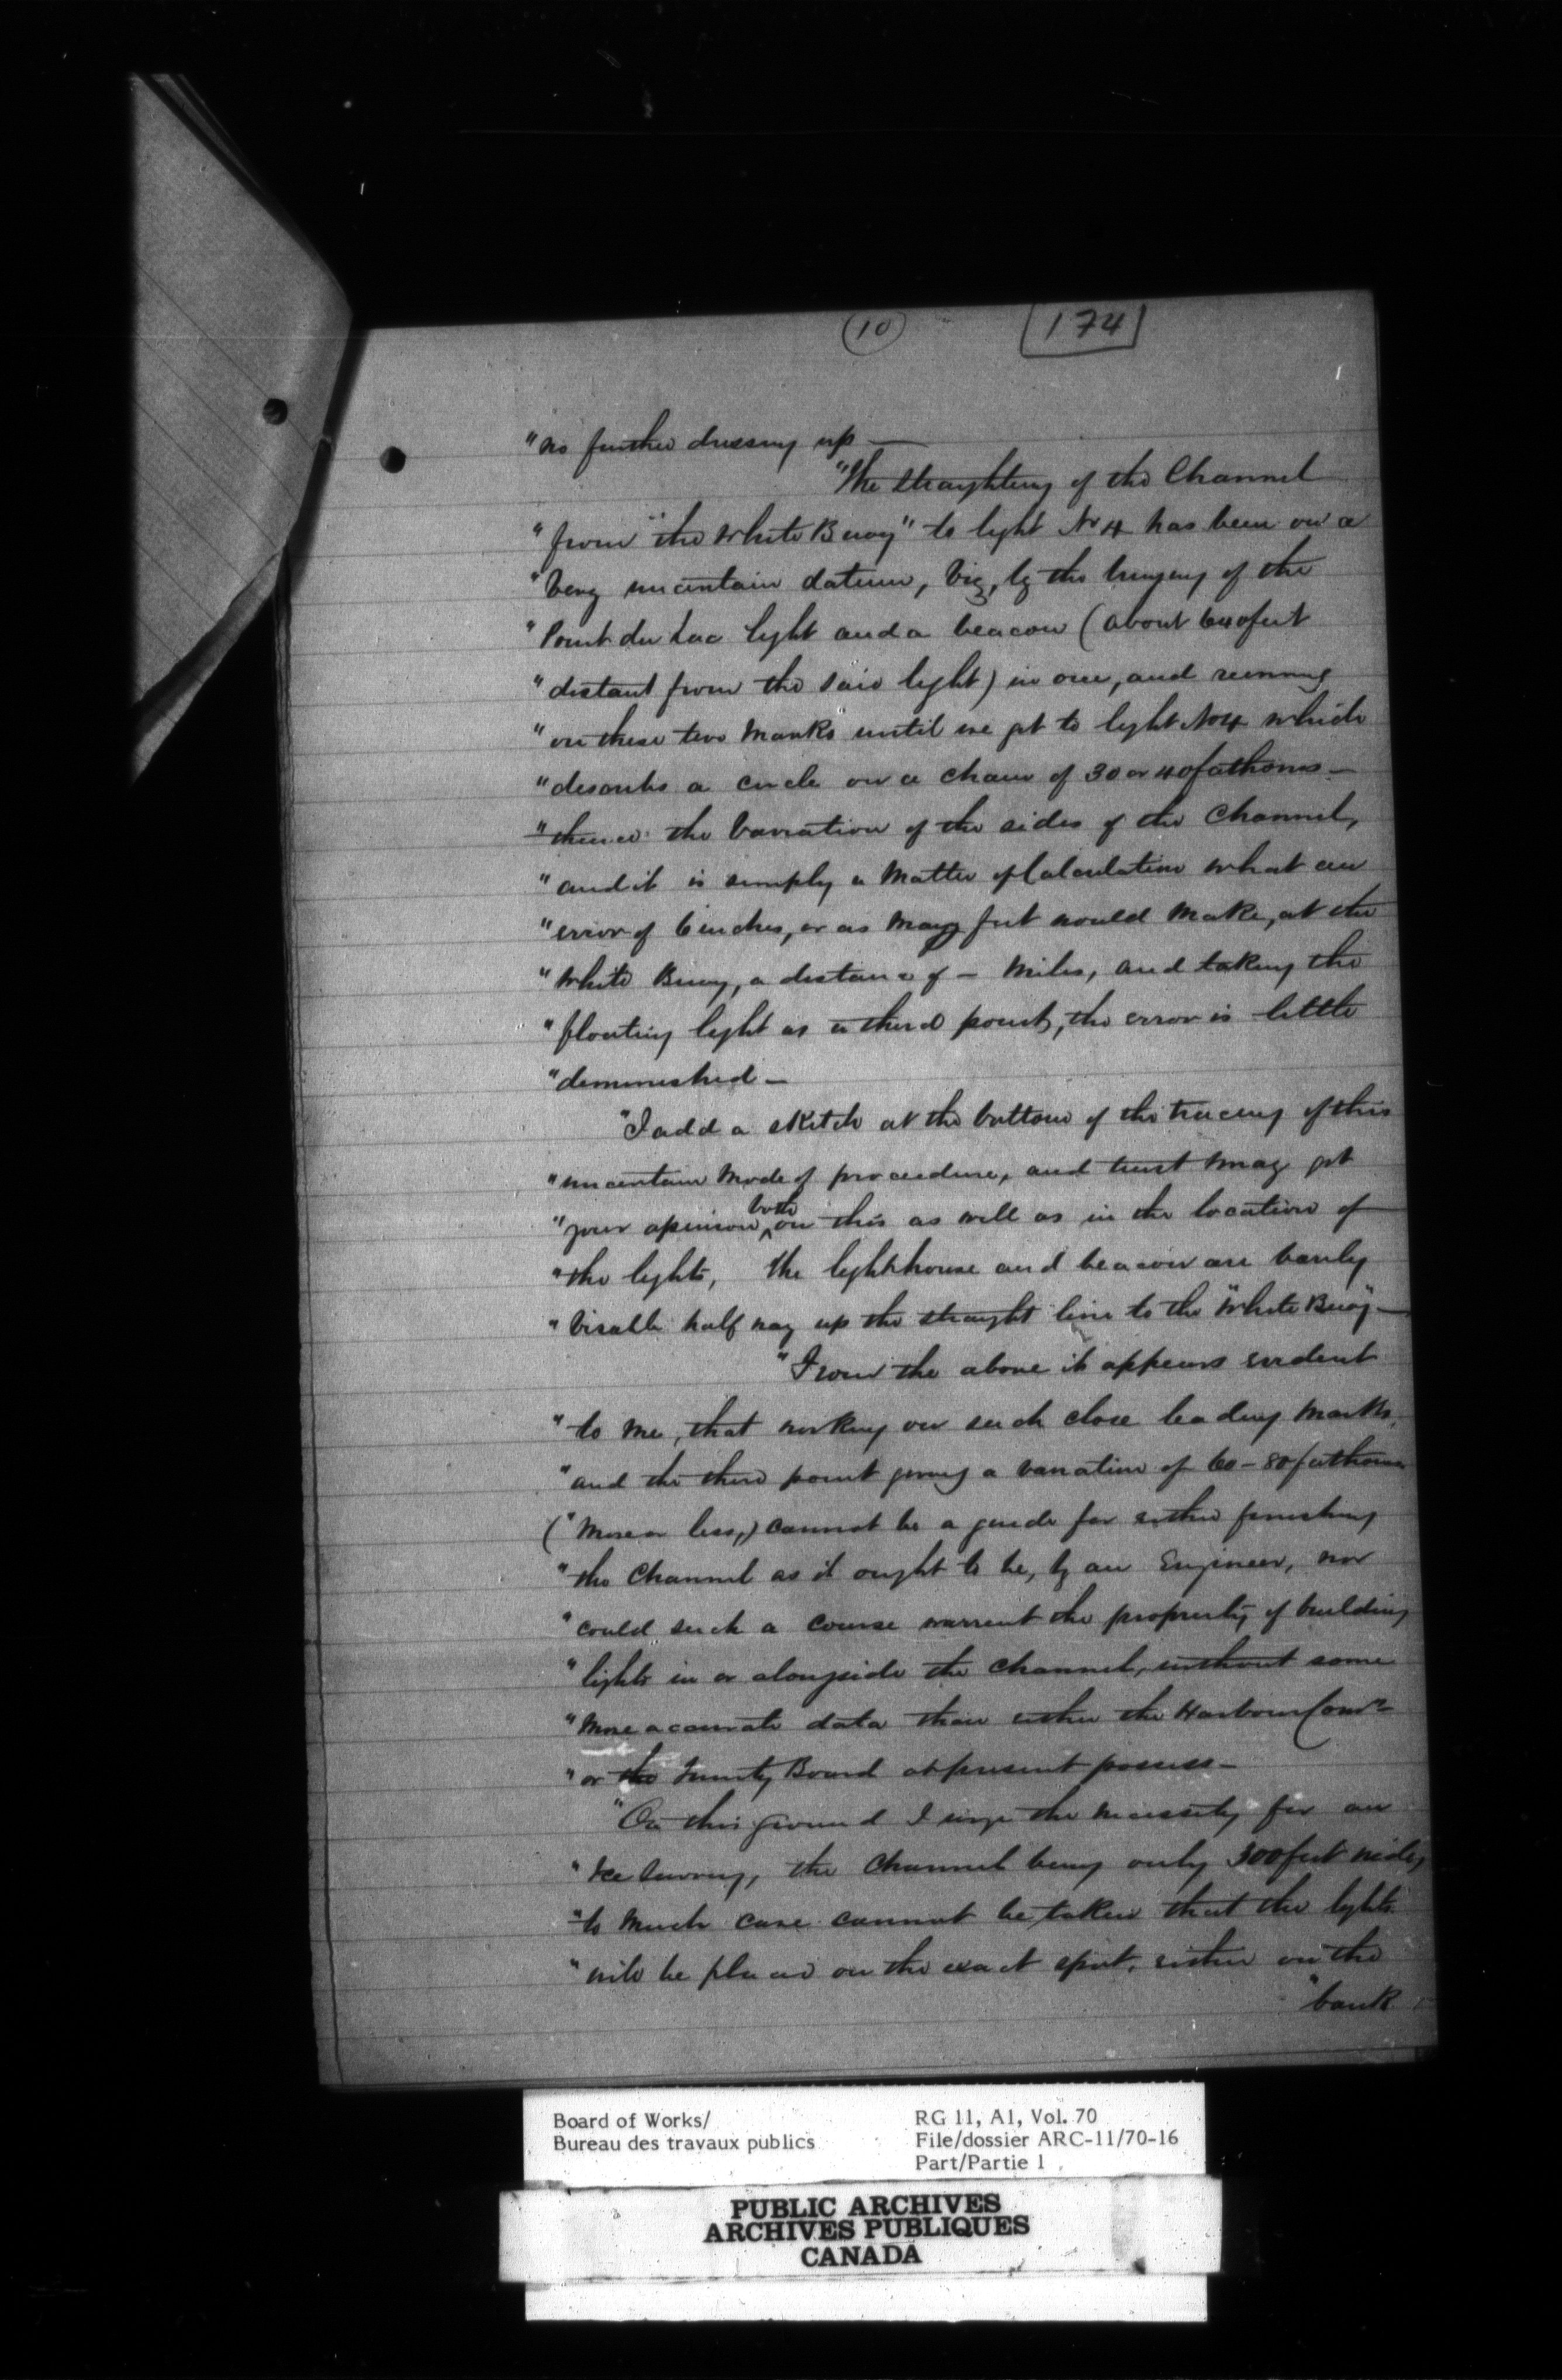 10
174
"no further dressing up —
"The straightening of the Channel
"from "the White Buoy" to light No 4 has been on a
"very uncertain datum, viz, by the bringing of the
"Point du Lac light and a beacon (about 640 feet
"distant from the said light) in one, and running
"on these two marks until we get to light No 4 which
"describes a circle on a chain of 30 or 40 fathoms —
"thence the variation of the sides of the Channel,
"and it is simply a matter of Calculation what an
"error of 6 inches, or as many feet would make, at the
"White Buoy, a distance of — miles, and taking the
"floating light as a third point, the error is little
"diminished —
"I add a sketch at the bottom of the tracing of this
"uncertain mode of proceedure, and trust I may get
"your opinion both on this as well as in the location of
"the lights, The lighthouse and beacon are barely
"visable half way up the straight line to the "White Buoy" —
"From the above it appears evident
"to me, that working on such close leading marks,
"and the third point giving a variation of 60 – 80 fathoms
("more or less,) cannot be a guide for either finishing
"the Channel as it ought to be, by an Engineer, nor
"could such a course warrent the propriety of building
"lights in or alongside the channel, without some
"more accurate data than either the Harbour Comrs
"or the Trinity Board at present possess —
"On this ground I urge the necessity for an
"Ice Survey, the Channel being only 300 feet wide,
"to much care cannot be taken that the lights
"will be placed on the exact spot, either on the
"bank
Board of Works/
Bureau des travaux publics
RG 11, A1, Vol. 70
File/dossier ARC-11/70-16
Part/Partie 1
PUBLIC ARCHIVES
ARCHIVES PUBLIQUES
CANADA